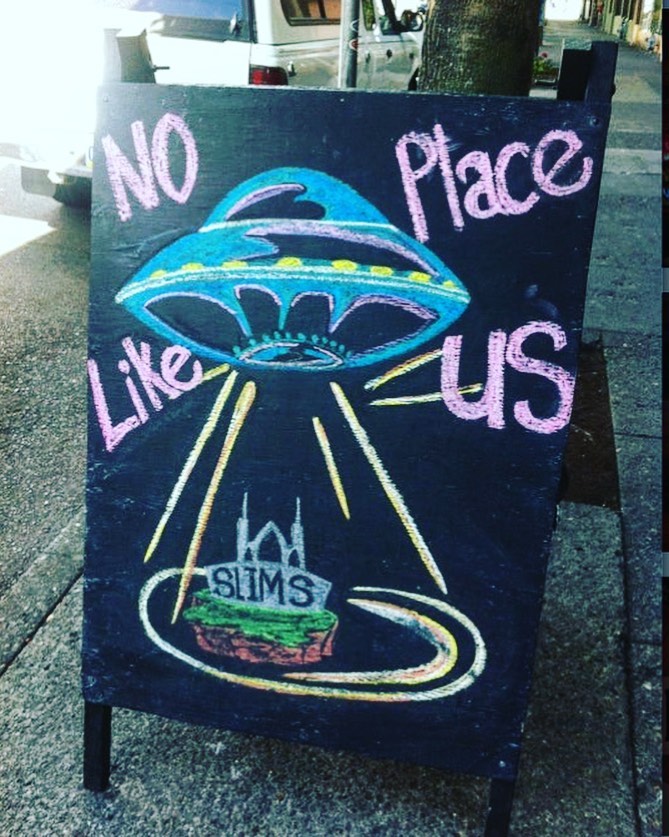 NO Place
Like us
SLIMS